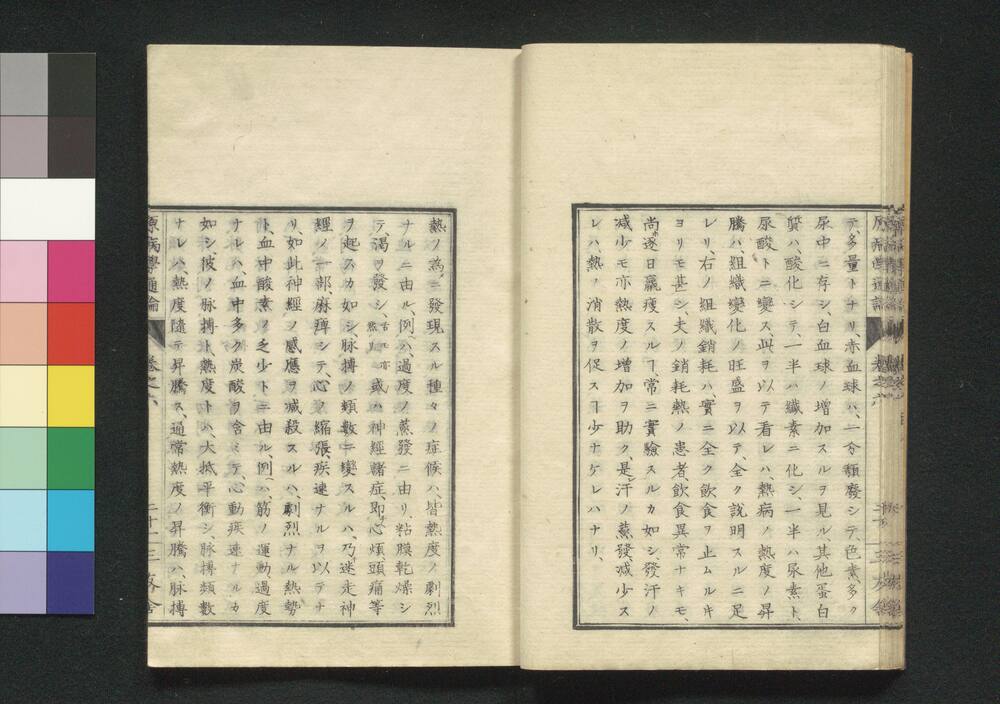 テ、多量トナリ赤血球ハ、一分頽廢シテ、色素多ク
尿中ニ存シ、白血球ノ増加スルヲ見ル、其他蛋白
質ハ、酸化シテ、一半ハ纖素ニ化シ、一半ハ尿素ト、
尿酸トニ變ス、此ヲ以テ看レハ、熱病ノ熱度ノ昇
騰ハ、組織變化ノ旺盛ヲ以テ、全ク説明スルニ足
レリ、右ノ組織銷耗ハ、實ニ全ク飲食ヲ止ムルキ
ヨリモ甚シ、夫ノ銷耗熱ノ患者、飲食異常ナキモ、
尚逐日羸瘦スルヿ、常ニ實驗スルカ如シ、發汗ノ
減少モ亦熱度ノ增加ヲ助ク、是汗ノ蒸發減少ス
レハ、熱ノ消散ヲ促スヿ少ナケレハナリ、
熱ノ為ニ發現スル種々ノ症候ハ、皆熱度ノ劇烈
ナルニ由ル、例ハ過度ノ蒸發ニ由リ、粘膜乾燥シ
テ、渇ヲ發シ、舌モ亦然リ或ハ神經諸症、即心煩、頭痛等
ヲ起スカ如シ、脉搏ノ頻數ニ變スルハ、乃迷走神
經ノ一部、麻痺シテ、心ノ縮張疾速ナルヲ以テナ
リ、如此神經ノ感應ヲ減殺スルハ、劇烈ナル熱勢
ト、血中酸素ノ乏少トニ由ル、例ハ、筋ノ運動、過度
ナレハ、血中多ク炭酸ヲ含ミテ、心動疾速ナルカ
如シ、彼ノ脉搏ト、熱度トハ、大抵平衡シ、脉搏頻數
ナレハ、熱度隨テ昇騰ス、通常熱度ノ昇騰ハ、脉搏
原病學通論 卷之六 二十三